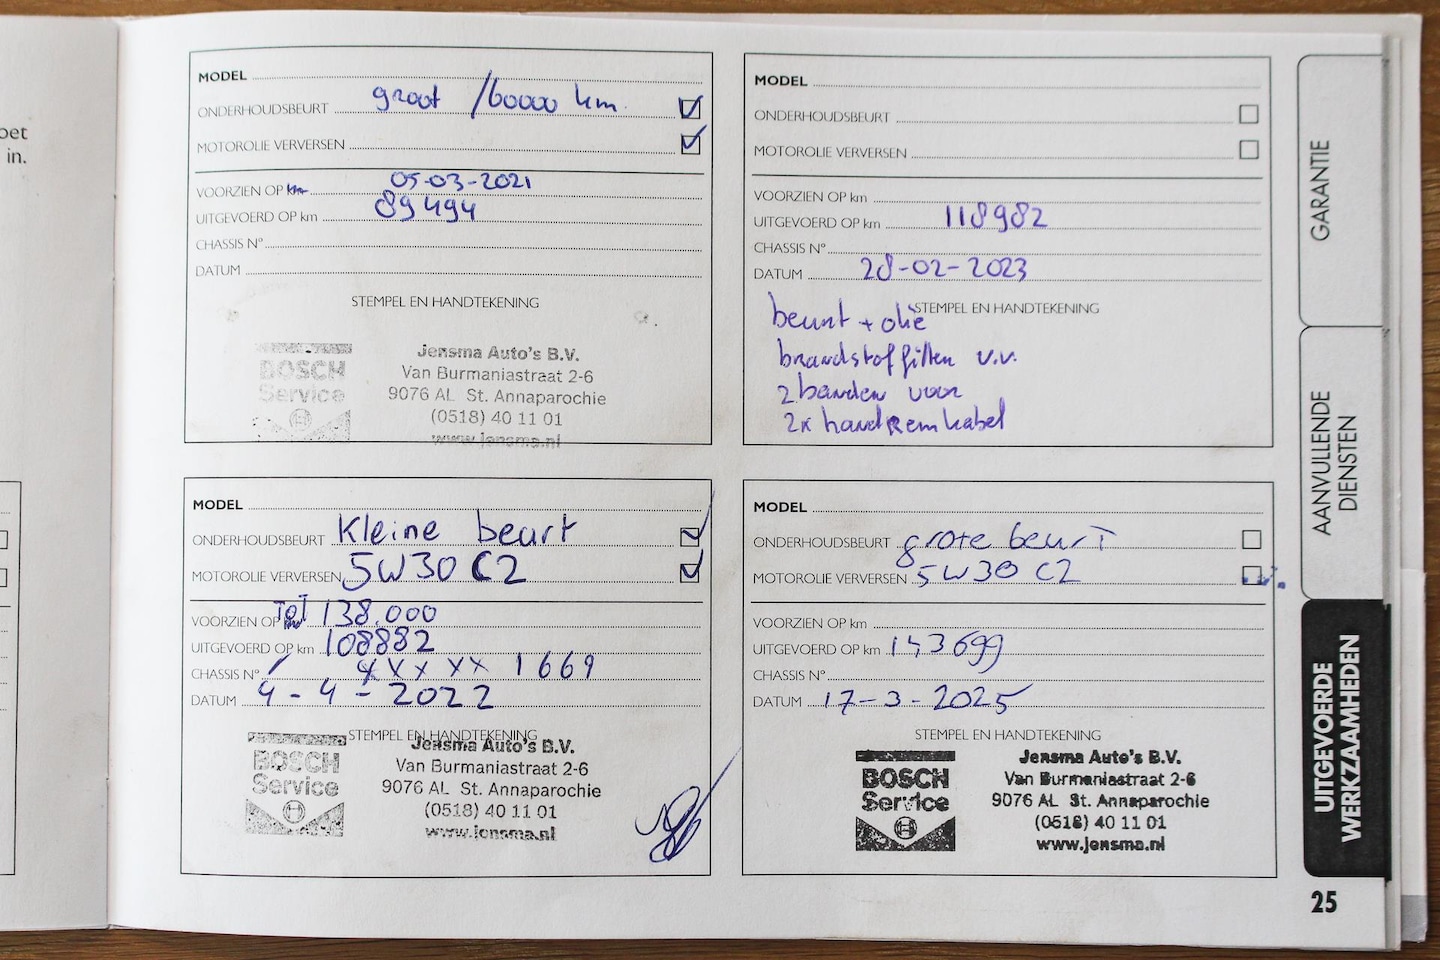 oet
in.
MODEL
ONDERHOUDSBEURT groot /60000 km.
MOTOROLIE VERVERSEN
VOORZIEN OP km 05-03-2021
UITGEVOERD OP km 89494
CHASSIS N°
DATUM
STEMPEL EN HANDTEKENING
BOSCH
Service
Jensma Auto's B.V.
Van Burmaniastraat 2-6
9076 AL St. Annaparochie
(0518) 40 11 01
www.jensma.nl
MODEL
ONDERHOUDSBEURT
MOTOROLIE VERVERSEN
VOORZIEN OP km
UITGEVOERD OP km 118982
CHASSIS N°
DATUM 28-02-2023
STEMPEL EN HANDTEKENING
beurt + olie
brandstoffilter v.v.
2 banden voor
2x handremkabel
MODEL
ONDERHOUDSBEURT Kleine beurt
MOTOROLIE VERVERSEN 5W30 C2
VOORZIEN OP Tot 138.000
UITGEVOERD OP km 108882
CHASSIS N° XXXXX 1669
DATUM 4-4-2022
STEMPEL EN HANDTEKENING
BOSCH
Service
Jensma Auto's B.V.
Van Burmaniastraat 2-6
9076 AL St. Annaparochie
(0518) 40 11 01
www.jensma.nl
MODEL
ONDERHOUDSBEURT grote beurt
MOTOROLIE VERVERSEN 5W30 C2
VOORZIEN OP km
UITGEVOERD OP km 143699
CHASSIS N°
DATUM 17-3-2025
STEMPEL EN HANDTEKENING
BOSCH
Service
Jensma Auto's B.V.
Van Burmaniastraat 2-6
9076 AL St. Annaparochie
(0518) 40 11 01
www.jensma.nl
GARANTIE
AANVULLENDE
DIENSTEN
UITGEVOERDE
WERKZAAMHEDEN
25